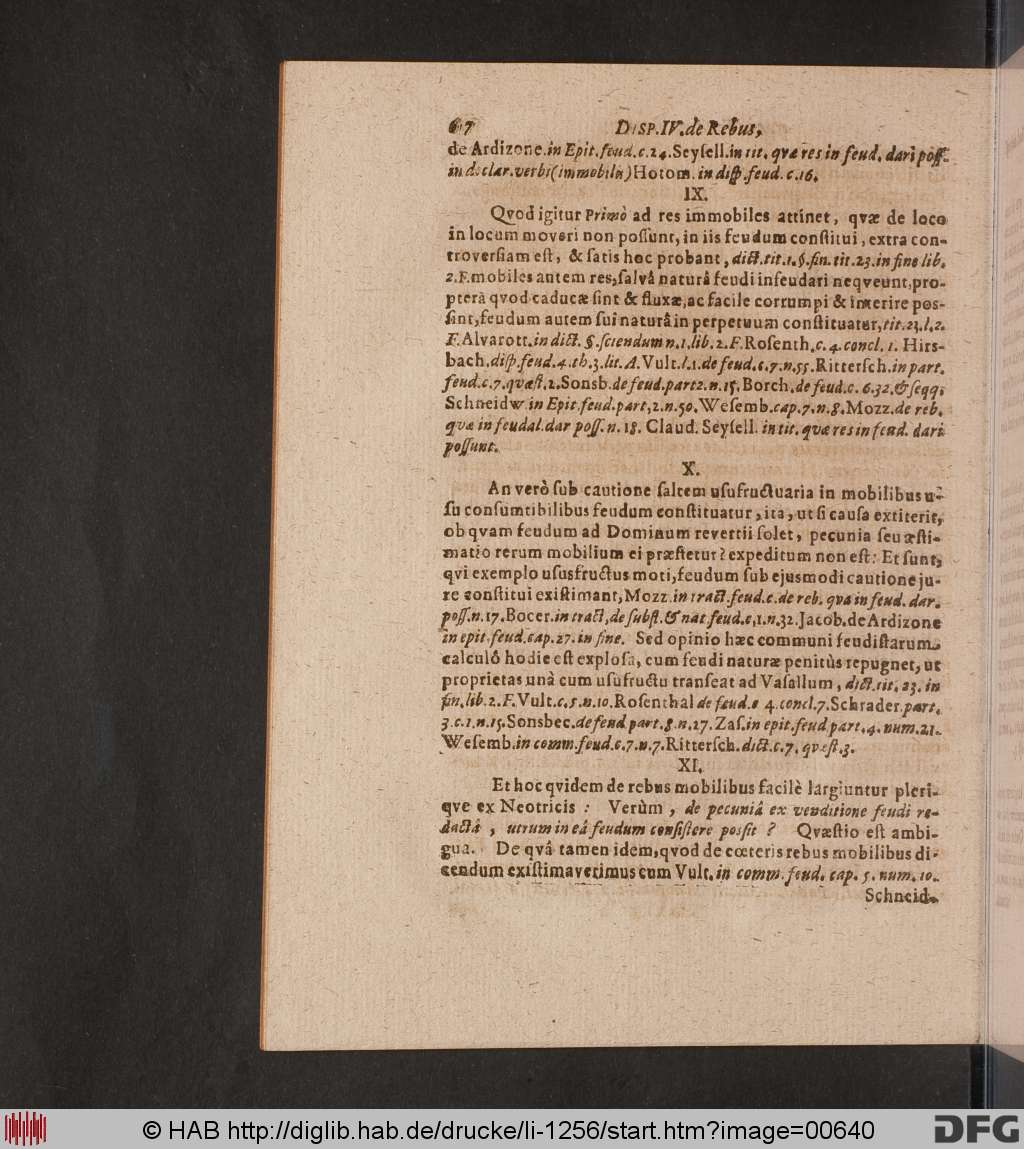 67 DISP. IV. de Rebus,
de Ardizone. in Epit. feud. c. 24. Seyſell. in tit. qvæ res in feud. dari poſſ.
in declar. verbi (immobiln) Hotom. in diſp. feud. c. 16.
IX.
Qvod igitur Primò ad res immobiles attinet, qvæ de loco
in locum moveri non poſſunt, in iis feudum conſtitui, extra con-
troverſiam eſt, & ſatis hoc probant, dict. tit. 1. §. fin. tit. 23. in fine lib.
2. F. mobiles autem res, ſalvâ naturâ feudi infeudari neqveunt, pro-
pterà qvod caducæ ſint & fluxæ, ac facile corrumpi & interire poſ-
ſint, feudum autem ſui naturâ in perpetuum conſtituatur, tit. 23. l. 2.
F. Alvarott. in dict. §. ſciendum n. 1. lib. 2. F. Roſenth. c. 4. concl. 1. Hirſ-
bach. diſp. feud. 4. th. 3. lit. A. Vult. l. 1. de feud. c. 7. n. 55. Ritterſch. in part.
feud. c. 7. qvæſt. 2. Sonsb. de feud. part 2. n. 15. Borch. de feud. c. 6. 32. & ſeqq.
Schneidw. in Epit. feud. part, 2. n. 50. Weſemb. cap. 7. n. 8. Mozz. de reb.
qvæ in feudal. dar poſſ. n. 18. Claud. Seyſell. in tit. qvæ res in feud. dari
poſſunt.
X.
An verò ſub cautione ſaltem uſufructuaria in mobilibus u-
ſu conſumtibilibus feudum conſtituatur, ita, ut ſi cauſa extiterit,
ob qvam feudum ad Dominum revertii ſolet, pecunia ſeu æſti-
matio rerum mobilium ei præſtetur? expeditum non eſt: Et ſunt,
qvi exemplo uſusfructus moti, feudum ſub ejusmodi cautione ju-
re conſtitui exiſtimant, Mozz. in tract. feud. c. de reb. qva in feud. dar.
poſſ. n. 17. Bocer. in tract, de ſubſt. & nat feud. c, 1. n. 32. Jacob. de Ardizone
in epit. feud. cap. 27. in fine. Sed opinio hæc communi feudiſtarum
calculô hodie eſt exploſa, cum feudi naturæ penitùs repugnet, ut
proprietas unà cum uſufructu tranſeat ad Vaſallum, dict. tit. 23. in
fin. lib. 2. F. Vult. c. 5. n. 10. Roſenthal de feud. c 4. concl. 7. Schrader. part.
3. c. 1. n. 15. Sonsbec. de feud part. 8. n. 27. Zaſ. in epit. feud part. 4. num. 21.
Weſemb. in comm. feud. c. 7. n. 7. Ritterſch. dict. c. 7. qvæſt. 3.
XI.
Et hoc qvidem de rebus mobilibus facilè largiuntur pleri-
qve ex Neotricis: Verùm, de pecuniâ ex venditione feudi re-
dactâ, utrum in eâ feudum conſiſtere posſit? Qvæſtio eſt ambi-
gua. De qvâ tamen idem, qvod de cœteris rebus mobilibus di-
cendum exiſtimaverimus cum Vult. in comm. feud. cap. 5. num. 10.
Schneid.
© HAB http://diglib.hab.de/drucke/li-1256/start.htm?image=00640
DFG